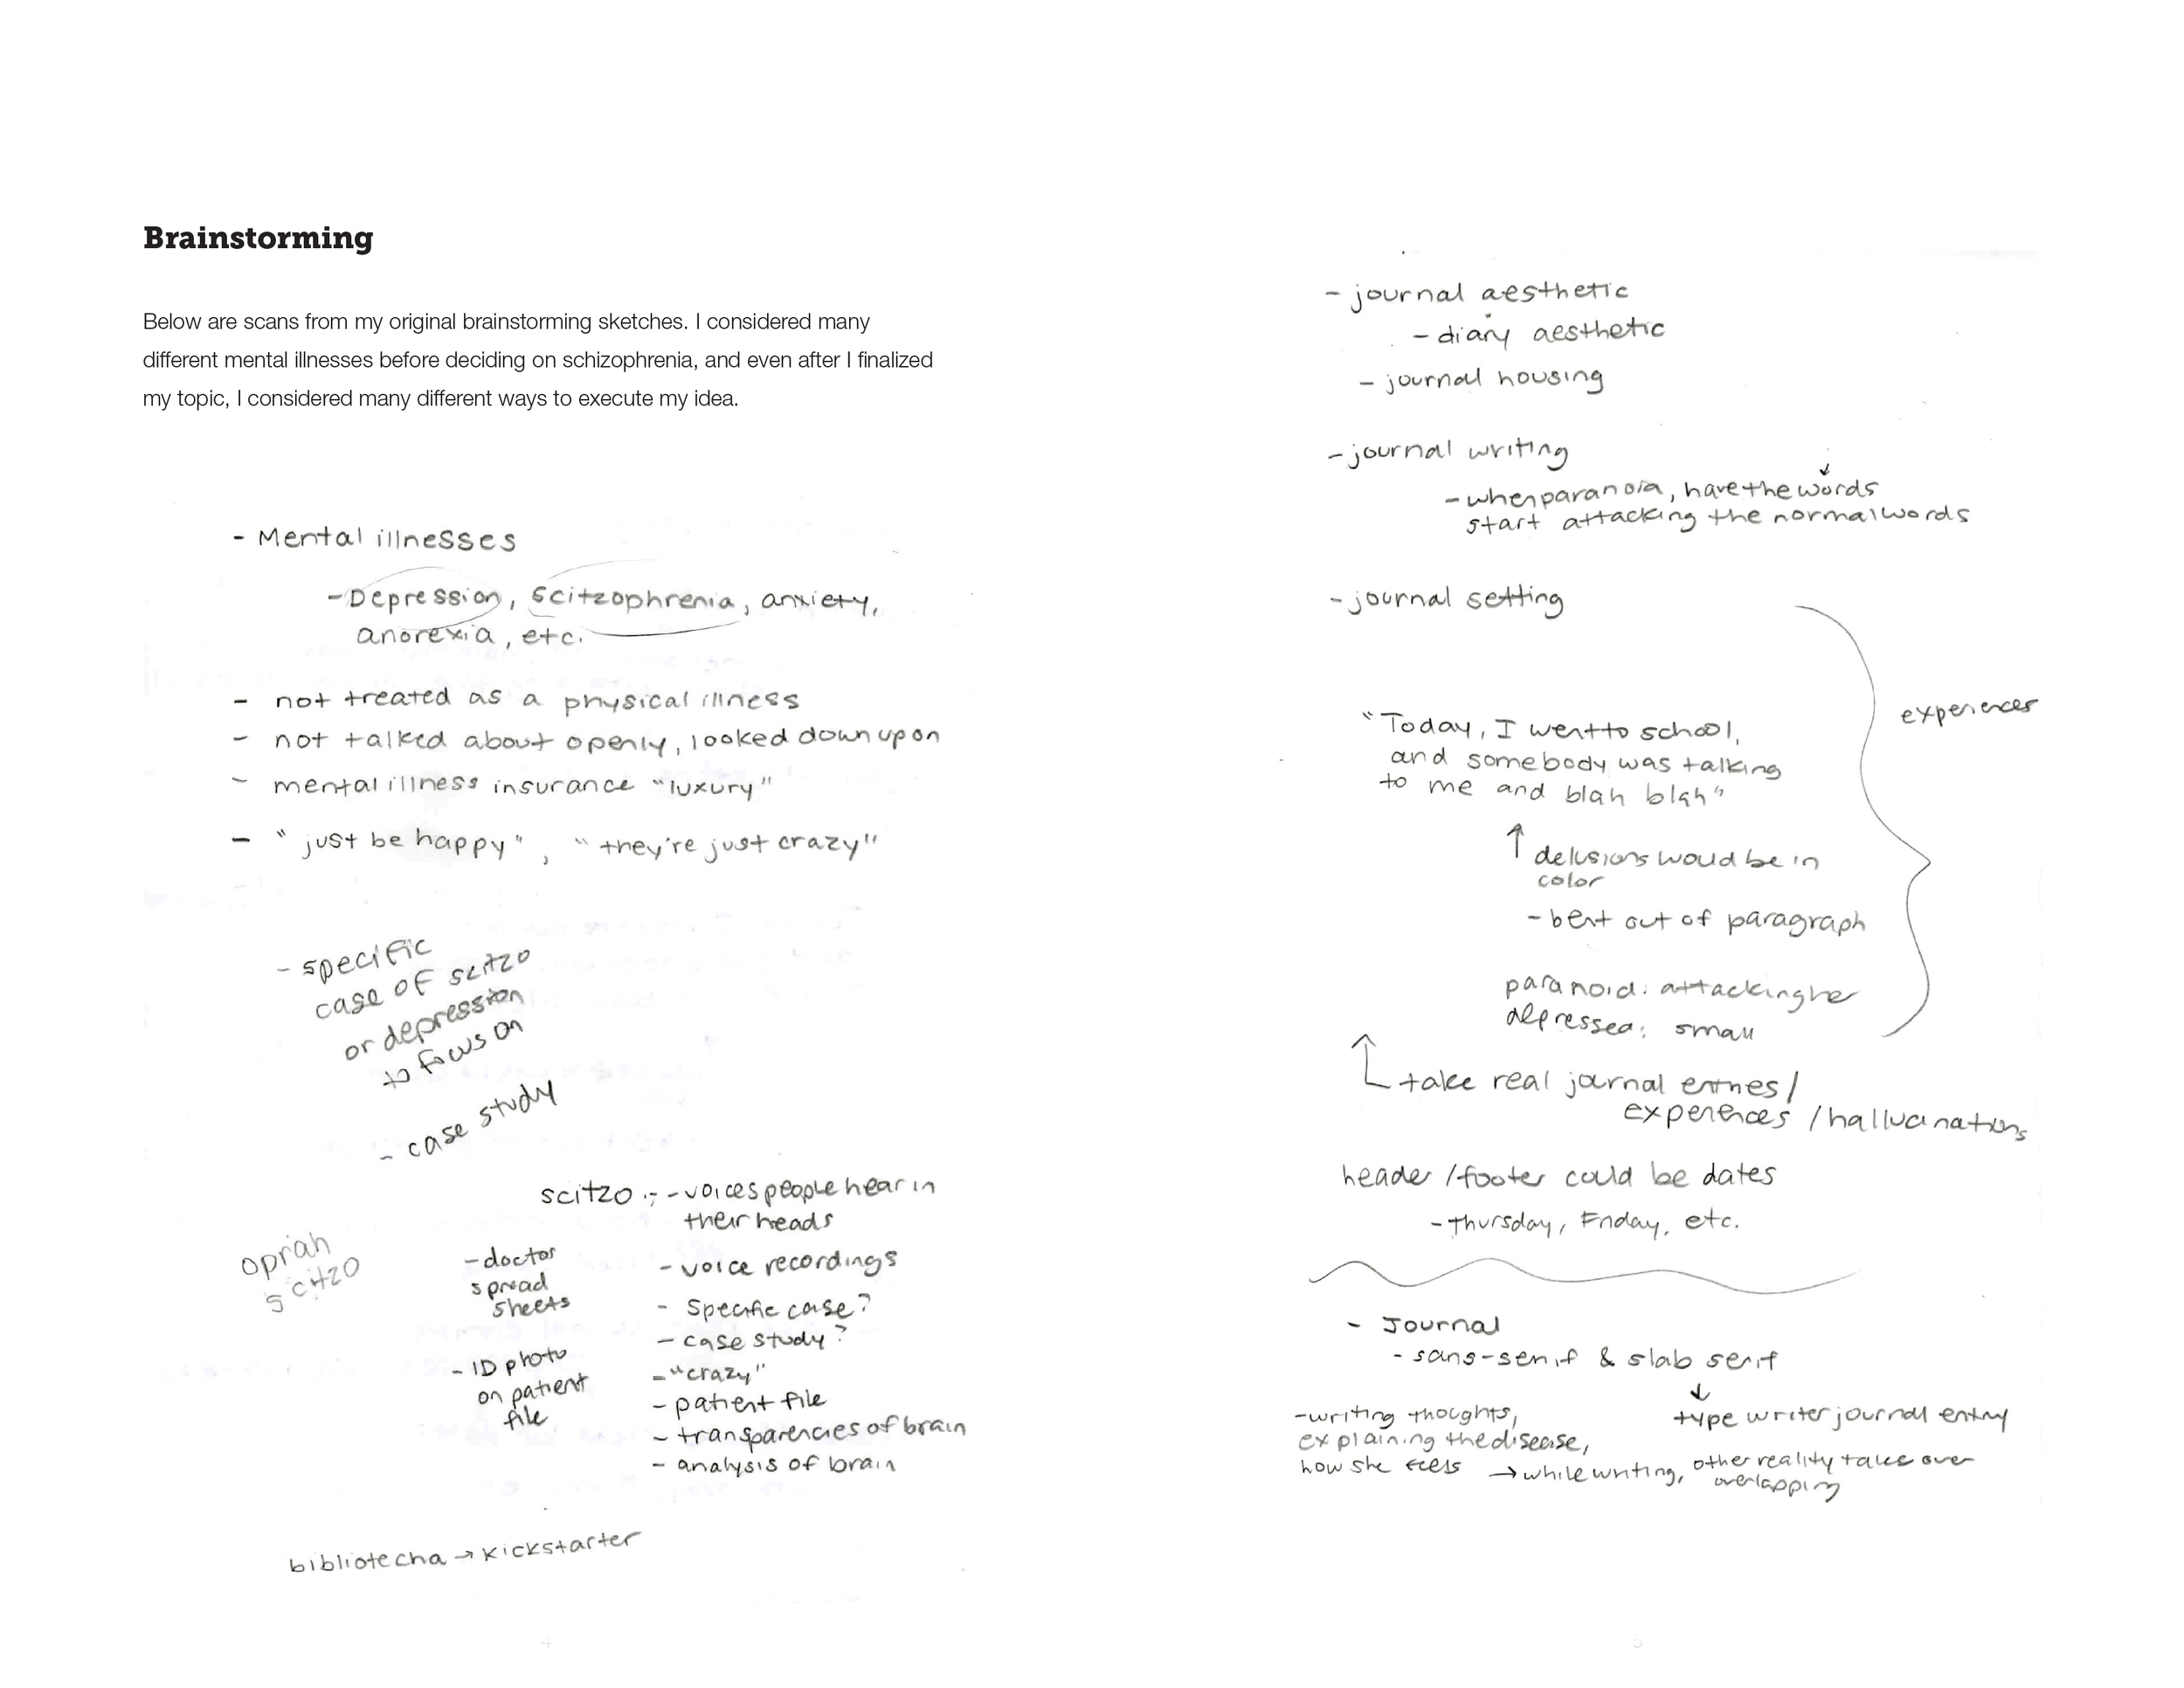 Brainstorming
Below are scans from my original brainstorming sketches. I considered many
different mental illnesses before deciding on schizophrenia, and even after I finalized
my topic, I considered many different ways to execute my idea.
- Mental illnesses
- Depression, scitzophrenia, anxiety,
anorexia, etc.
- not treated as a physical illness
- not talked about openly, looked down upon
- mental illness insurance "luxury"
- "just be happy", "they're just crazy"
- specific
case of scitzo
or depression
to focus on
- case study
scitzo :- - voices people hear in
their heads
oprah
scitzo
- doctor
spread
sheets
- ID photo
on patient
file
- voice recordings
- specific case?
- case study?
- "crazy"
- patient file
- transparencies of brain
- analysis of brain
bibliotecha → kickstarter
4
- journal aesthetic
- diary aesthetic
- journal housing
- journal writing
- when paranoia, have the words
start attacking the normal words
- journal setting
experiences
"Today, I went to school,
and somebody was talking
to me and blah blah"
↑ delusions would be in
color
- bent out of paragraph
paranoid: attacking her
depressed: small
take real journal entries/
experiences / hallucinations
header / footer could be dates
- Thursday, Friday, etc.
- Journal
- sans-serif & slab serif
↓
type writer journal entry
- writing thoughts,
explaining the disease,
how she feels → while writing, other reality takes over
overlapping
5